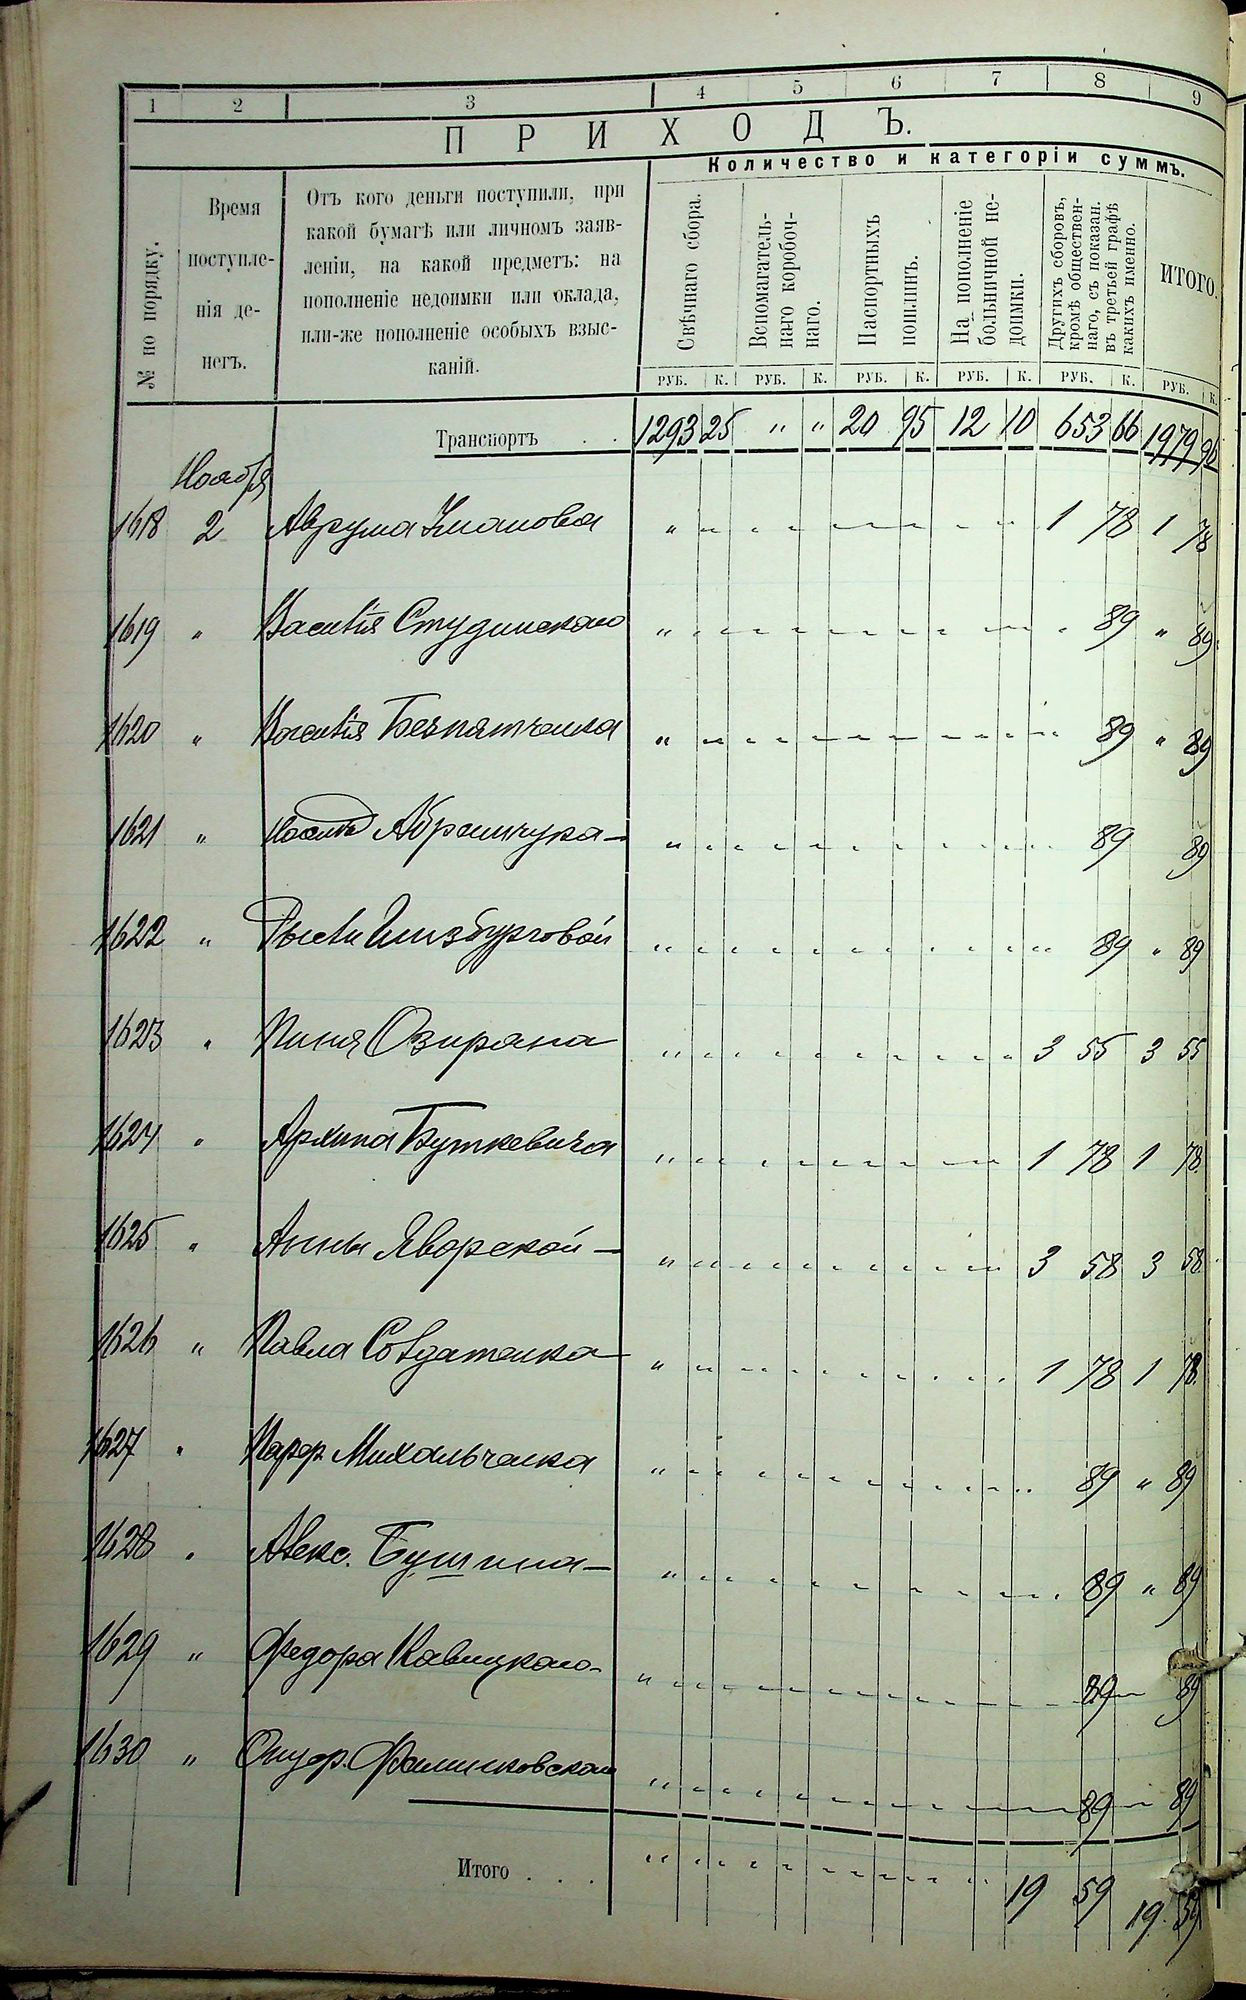 1 2 3 4 5 6 7 8 9
ПРИХОДЪ.
Количество и категоріи суммъ.
№ по порядку.
Время поступле-
нія де-
негъ.
Отъ кого деньги поступили, при
какой бумагѣ или личномъ заяв-
леніи, на какой предметъ: на
пополненіе недоимки или оклада,
или-же пополненіе особыхъ взыс-
каній.
Свѣчнаго сбора.
Вспомагатель-
наго коробоч-
наго.
Паспортныхъ
пошлинъ.
На пополненіе
больничной не-
доимки.
Другихъ сборовъ,
кромѣ обществен-
наго, съ показан.
въ третьей графѣ
какихъ именно.
ИТОГО.
РУБ. К. РУБ. К. РУБ. К. РУБ. К. РУБ. К. РУБ. К.
Транспортъ . . 1293 25 " " 20 95 12 10 653 66 1979 96
Ноября
1618 2 Аврума 1 78 1 78
1619 " Василія Студинскаго " 89 " 89
1620 " Василія Безпятченка " 89 " 89
1621 " Абрамчука 89 89
1622 " Рысли Гинзбурговой 89 " 89
1623 " Пиня Озирана 3 55 3 55
1624 " Архипа Буткевича 1 78 1 78
1625 " Анны Яворской 3 58 3 58
1626 " Павла Солдатенка 1 78 1 78
1627 " Михальченка 89 " 89
1628 " Алекс. 89 " 89
1629 " Федора 89 89
1630 " 89 89
Итого . . . 19 59 19 59